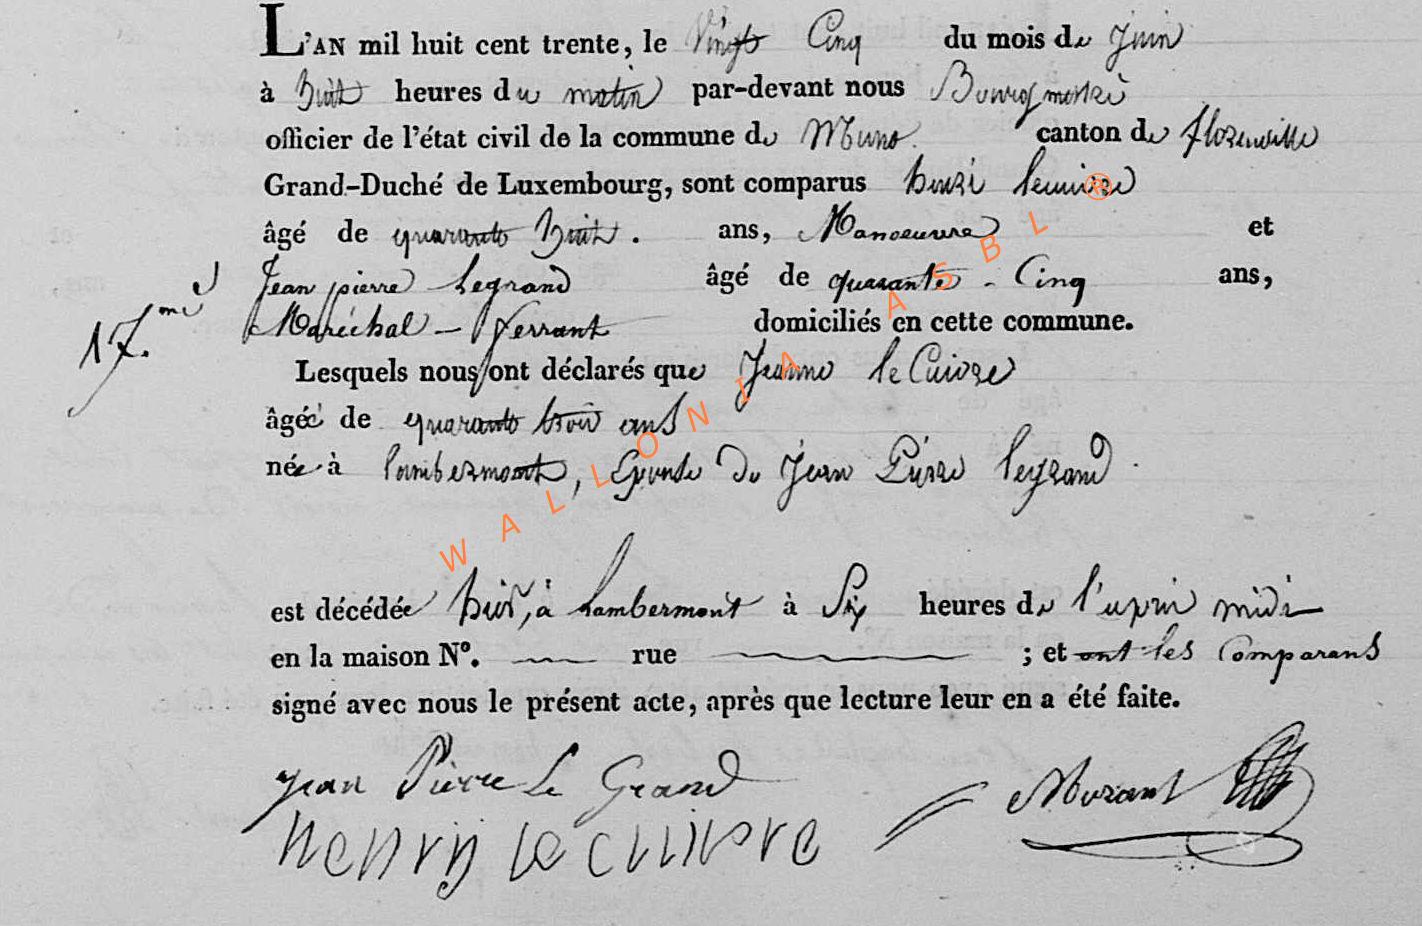 L'AN mil huit cent trente, le Vingt Cinq du mois de Juin
à huit heures du matin par-devant nous Bourgmestre
officier de l'état civil de la commune de Muno. canton de florenville
Grand-Duché de Luxembourg, sont comparus henri lecuivre
âgé de quarante huit. ans, Manoeuvre et
Jean pierre Legrand âgé de quarante - Cinq ans,
17.me Maréchal - ferrant domiciliés en cette commune.
Lesquels nous ont déclarés que Jeanne le Cuivre
âgée de quarante trois ans
née à lambermont, Epouse de Jean Pierre legrand.
est décédée hier, à Lambermont à Six heures de l'aprèr midi
en la maison N°. rue ; et ont les Comparans
signé avec nous le présent acte, après que lecture leur en a été faite.
Jean Pierre Le Grand
Henry le cuivre
WALLONIA ASBL ®